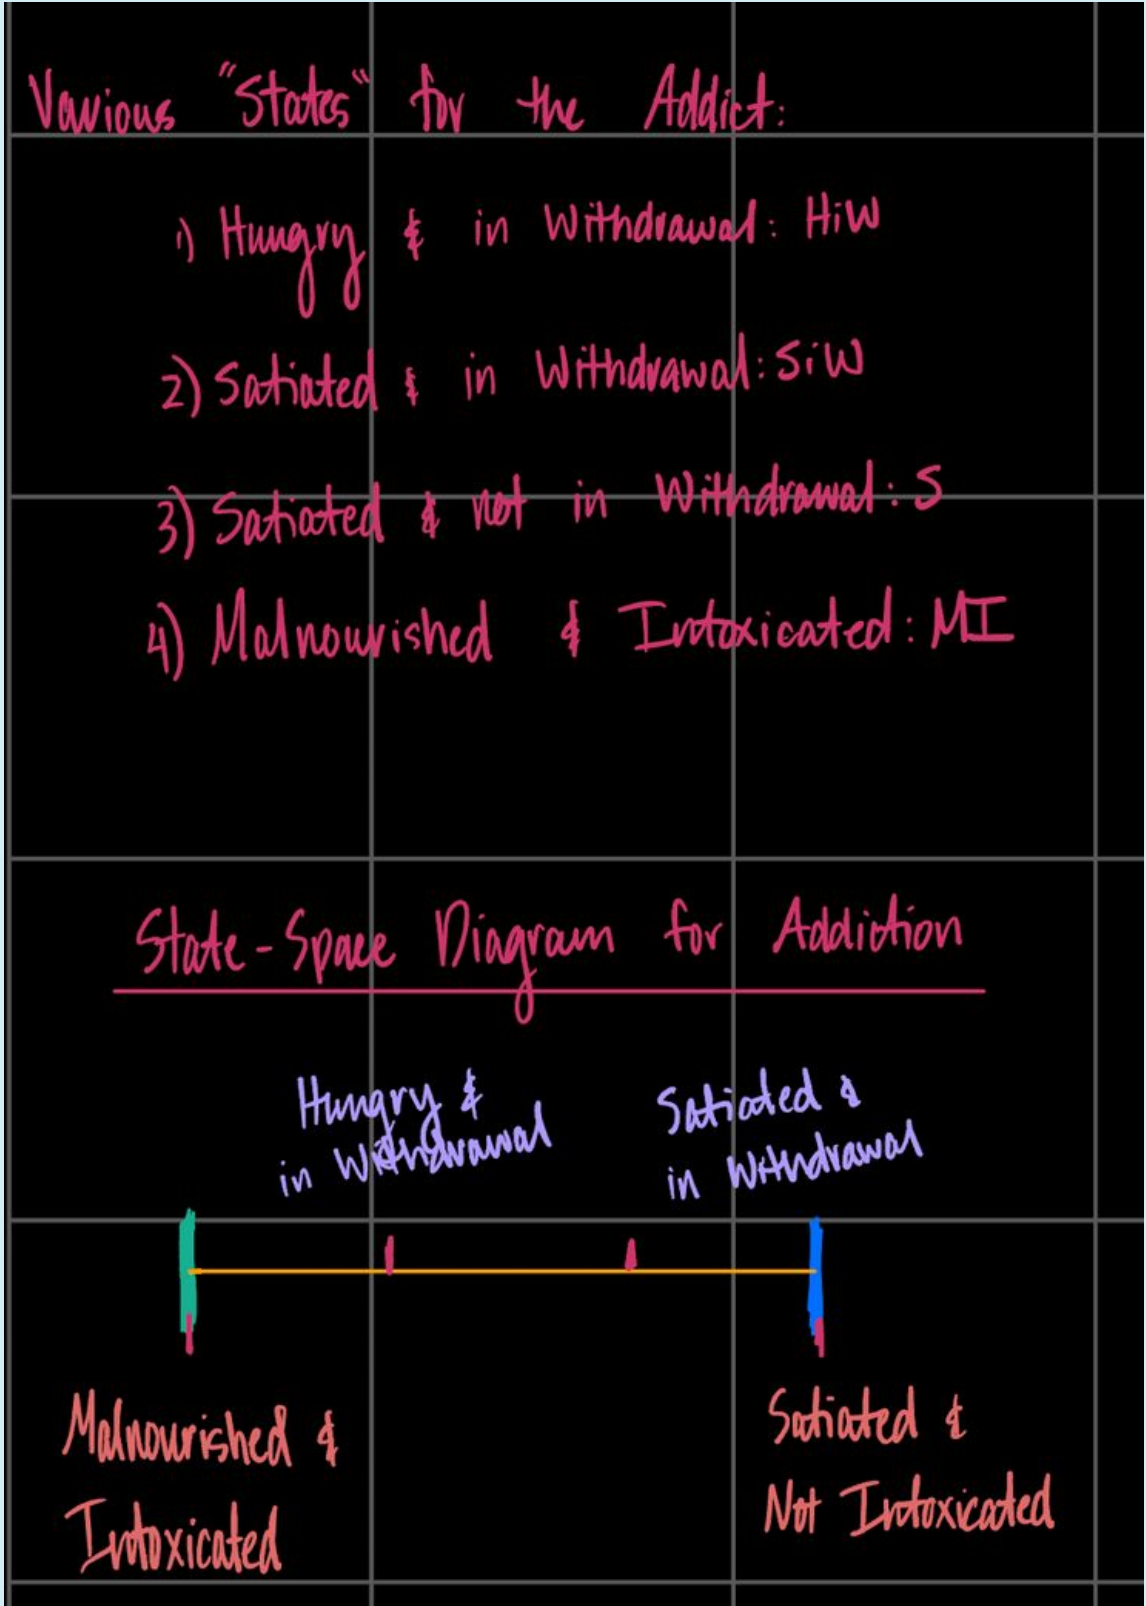 Various "States" for the Addict:
1) Hungry & in Withdrawal: HiW
2) Satiated & in Withdrawal: SiW
3) Satiated & not in Withdrawal: S
4) Malnourished & Intoxicated: MI
State-Space Diagram for Addiction
Hungry &
in Withdrawal
Satiated &
in Withdrawal
Malnourished &
Intoxicated
Satiated &
Not Intoxicated